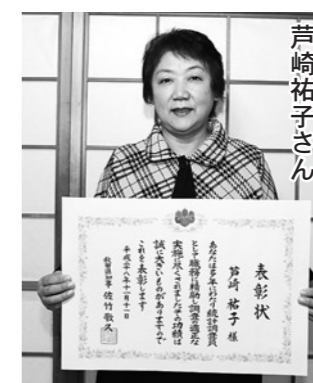 芦崎祐子さん
表彰状
芦崎 祐子 様
あなたは多年にわたり統計調査員
として職務に精励し調査の適正な
実施に尽くされましたその功績は
誠に大きいものがありますので
これを表彰します
平成二十八年十一月十一日
秋田県知事 佐竹敬久